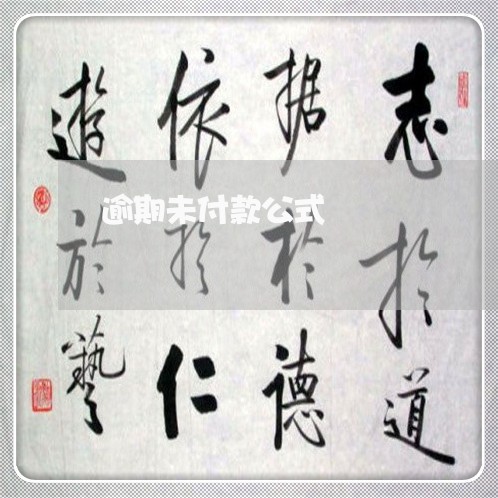 志於道
据於德
依於仁
遊於藝
逾期未付款公式